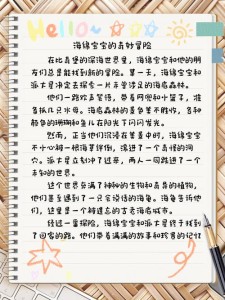 Hello~
海绵宝宝的奇妙冒险
在比奇堡的深海世界里,海绵宝宝和他的朋
友们总是能找到新的冒险。某一天,海绵宝宝和
派大星决定去探索一片未曾涉足的海底森林。
他们一路欢声笑语,带着网兜和小篮子,准
备抓几只水母。海底森林的景象美不胜收,各种
颜色的珊瑚和鱼儿在阳光下闪闪发光。
然而,正当他们沉浸在美景中时,海绵宝宝
不小心被一根海草绊倒,滚进了一个奇怪的洞
穴。派大星立刻冲了过来,两人一同跌进了一个
未知的世界。
这个世界充满了神秘的生物和奇异的植物,
他们甚至遇到了一只会说话的海龟。海龟告诉他
们,这里是一个被遗忘的古老海底城市。
经过一番探险,海绵宝宝和派大星终于找到
了回家的路。他们带着满满的故事和珍贵的记忆